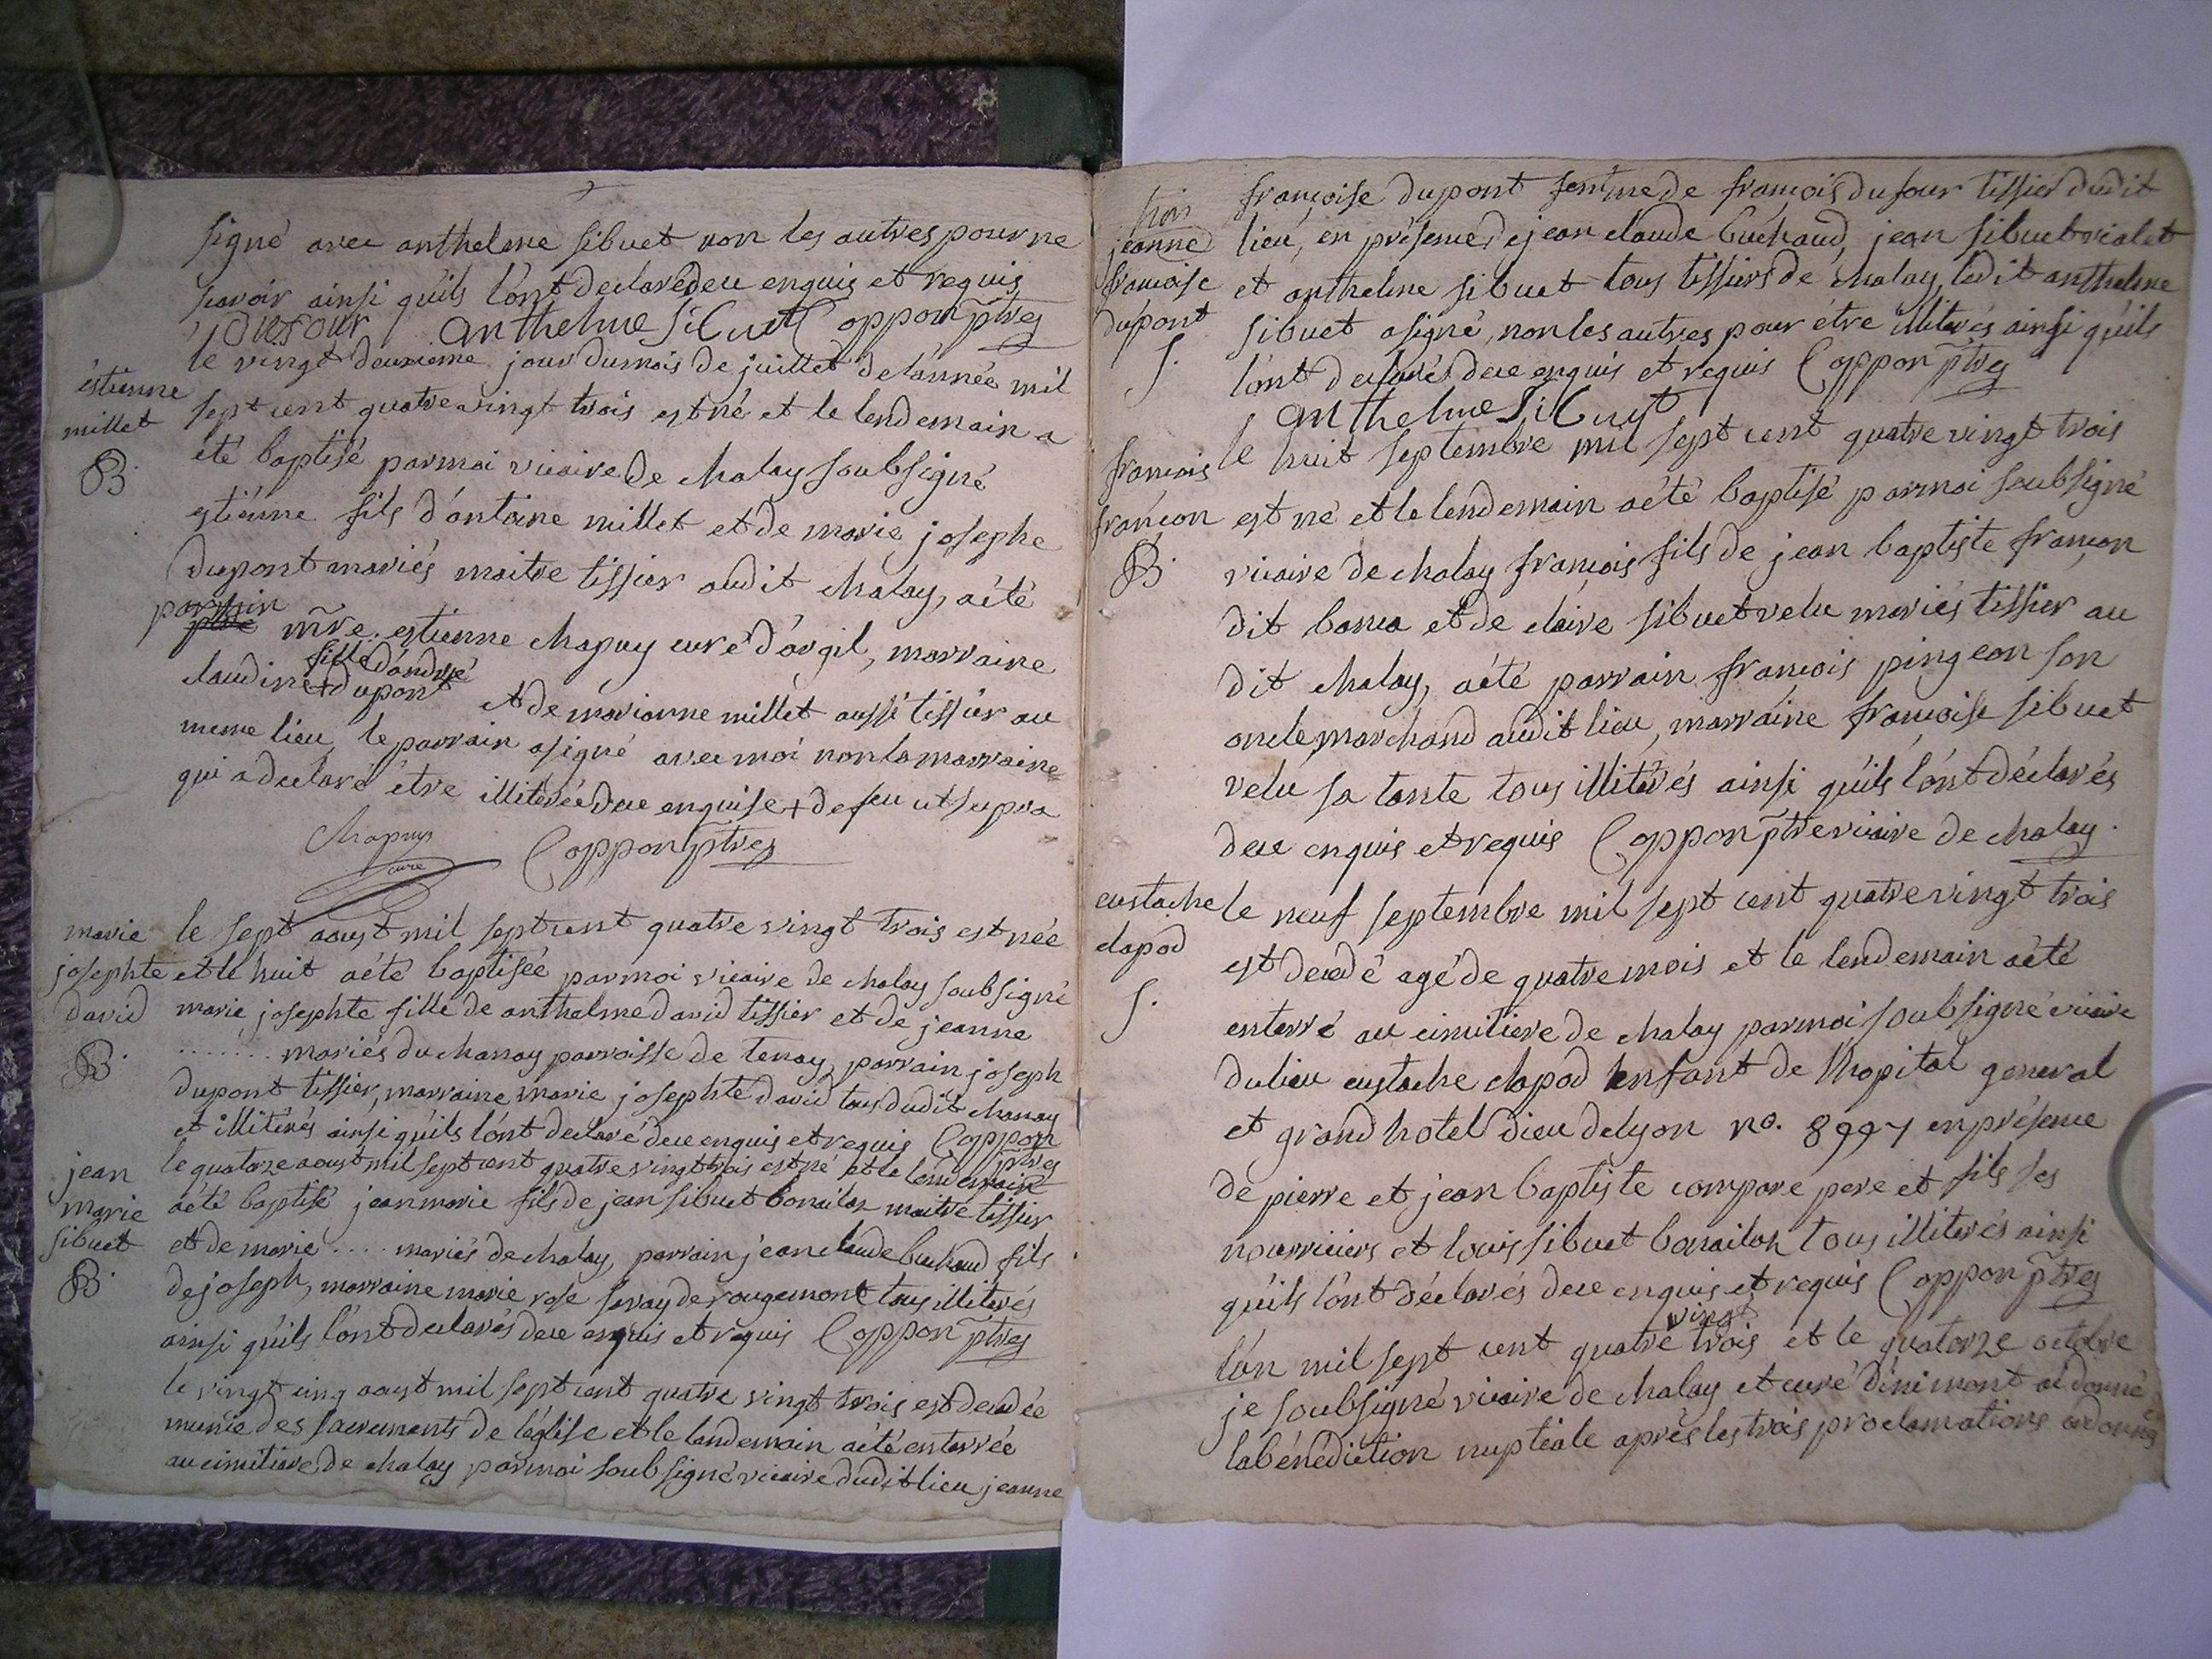 signé avec anthelme sibuet non les autres pour ne
scavoir ainsi qu'ils l'ont declaré deu enquis et requis
Dufour anthelme Sibuet Coppon ptre
le vingt deuxieme jour du mois de juillet de l'année mil
éstienne
sept cent quatre vingt trois est né et le lendemain a
millet
été baptisé par moi vicaire de chalay soubsigné
B.
estiénne fils d'antoine millet et de marie josephe
dupont mariés maitre tissier audit chalay, a été
parrain
mre. estienne chapuy curé d'orgil, marraine
fille d'andré
claudine + dupont et de marianne millet aussi tissier au
meme lieu, le parrain a signé avec moi non la marraine
qui a declaré étre illiterée deue enquise + de feu ut supra
Chapuy curé Coppon ptre
marie le sept aoust mil sept cent quatre vingt trois est née
josephte et le huit a été baptisée par moi vicaire de chalay soubsigné
david marie josephte fille de anthelme david tissier et de jeanne
B. ....... mariés du chanay parroisse de tenay, parrain joseph
dupont tissier, marraine marie josephte david tous dudit chanay
et illiterés ainsi qu'ils l'ont declaré deue enquis et requis Coppon
ptre
jean le quatorze aoust mil sept cent quatre vingt trois est né et le lendemain
marie a été baptisé jean marie fils de jean sibuet bonailoz maitre tissier
sibuet et de marie .... mariés de chalay, parrain jean claude buchaud fils
B. de joseph, marraine marie rose savay de rougemont tous illiterés
ainsi qu'ils l'ont declarés deue enquis et requis Coppon ptre
le vingt cinq aoust mil sept cent quatre vingt trois est decedée
munie des sacrements de l'église et le lendemain a été enterrée
au cimitiere de chalay par moi soubsigné vicaire dudit lieu jeanne
françoise dupont femme de françois dufour tissier dudit
jeanne lieu, en présence de jean claude buchaud, jean sibuet violet
françoise et anthelme sibuet tous tissiers de chalay, ledit anthelme
dupont sibuet a signé, non les autres pour étre illiterés ainsi qu'ils
S. l'ont declarés deue enquis et requis Coppon ptre
anthelme Sibuet
le huit septembre mil sept cent quatre vingt trois
francois
françon est né et le lendemain a été baptisé par moi soubsigné
B. vicaire de chalay françois fils de jean baptiste françon
dit banca et de claire sibuet velu mariés tissier au
dit chalay, a été parrain francois pingeon son
oncle marchand audit lieu, marraine francoise sibuet
velu sa tante tous illiterés ainsi qu'ils l'ont déclarés
deue enquis et requis Coppon ptre vicaire de chalay.
eustache le neuf septembre mil sept cent quatre vingt trois
clapod est decedé agé de quatre mois et le lendemain a été
S. enterré au cimitiere de chalay par moi soubsigné vicaire
du lieu eustache clapod enfant de l'hopital general
et grand hotel dieu de lyon no. 8997 en présence
de pierre et jean baptiste compare pere et fils ses
nourriciers et louis sibuet bonailoz tous illiterés ainsi
qu'ils l'ont déclarés deue enquis et requis Coppon ptre
vingt
l'an mil sept cent quatre trois et le quatorze octobre
je soubsigné vicaire de chalay et curé d'inimont ai donné
la bénédiction nuptiale aprés les trois proclamations